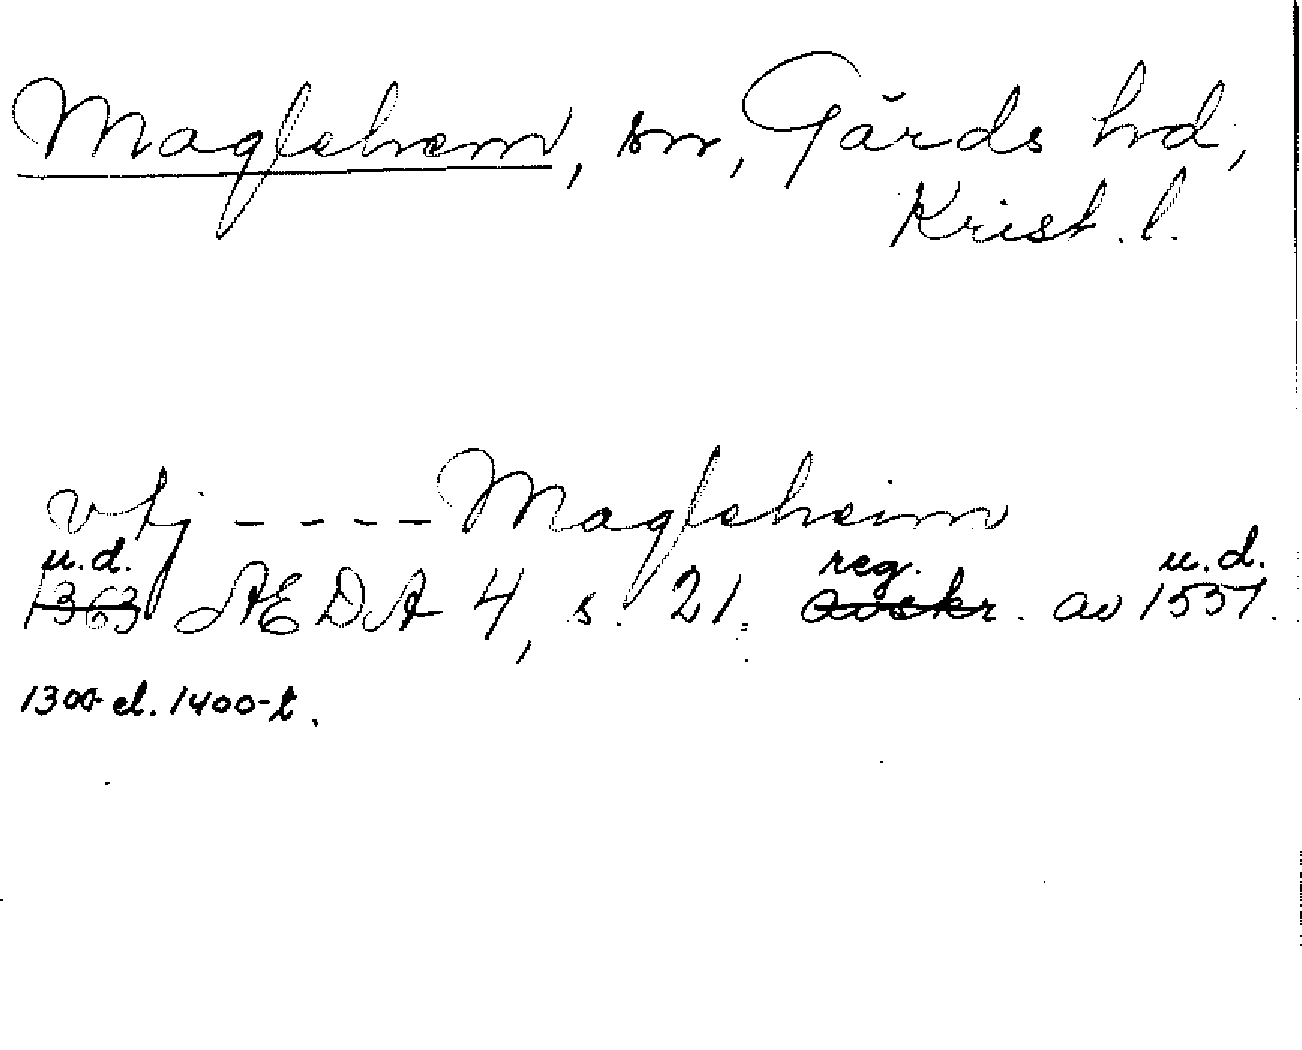 Maglehem, sn, Gärds hd,
Krist. l.
vtj ---- Magleheim
u.d. reg. u.d.
1363 ÆDA 4, s. 21. avskr. av 1537.
1300- el. 1400-t.